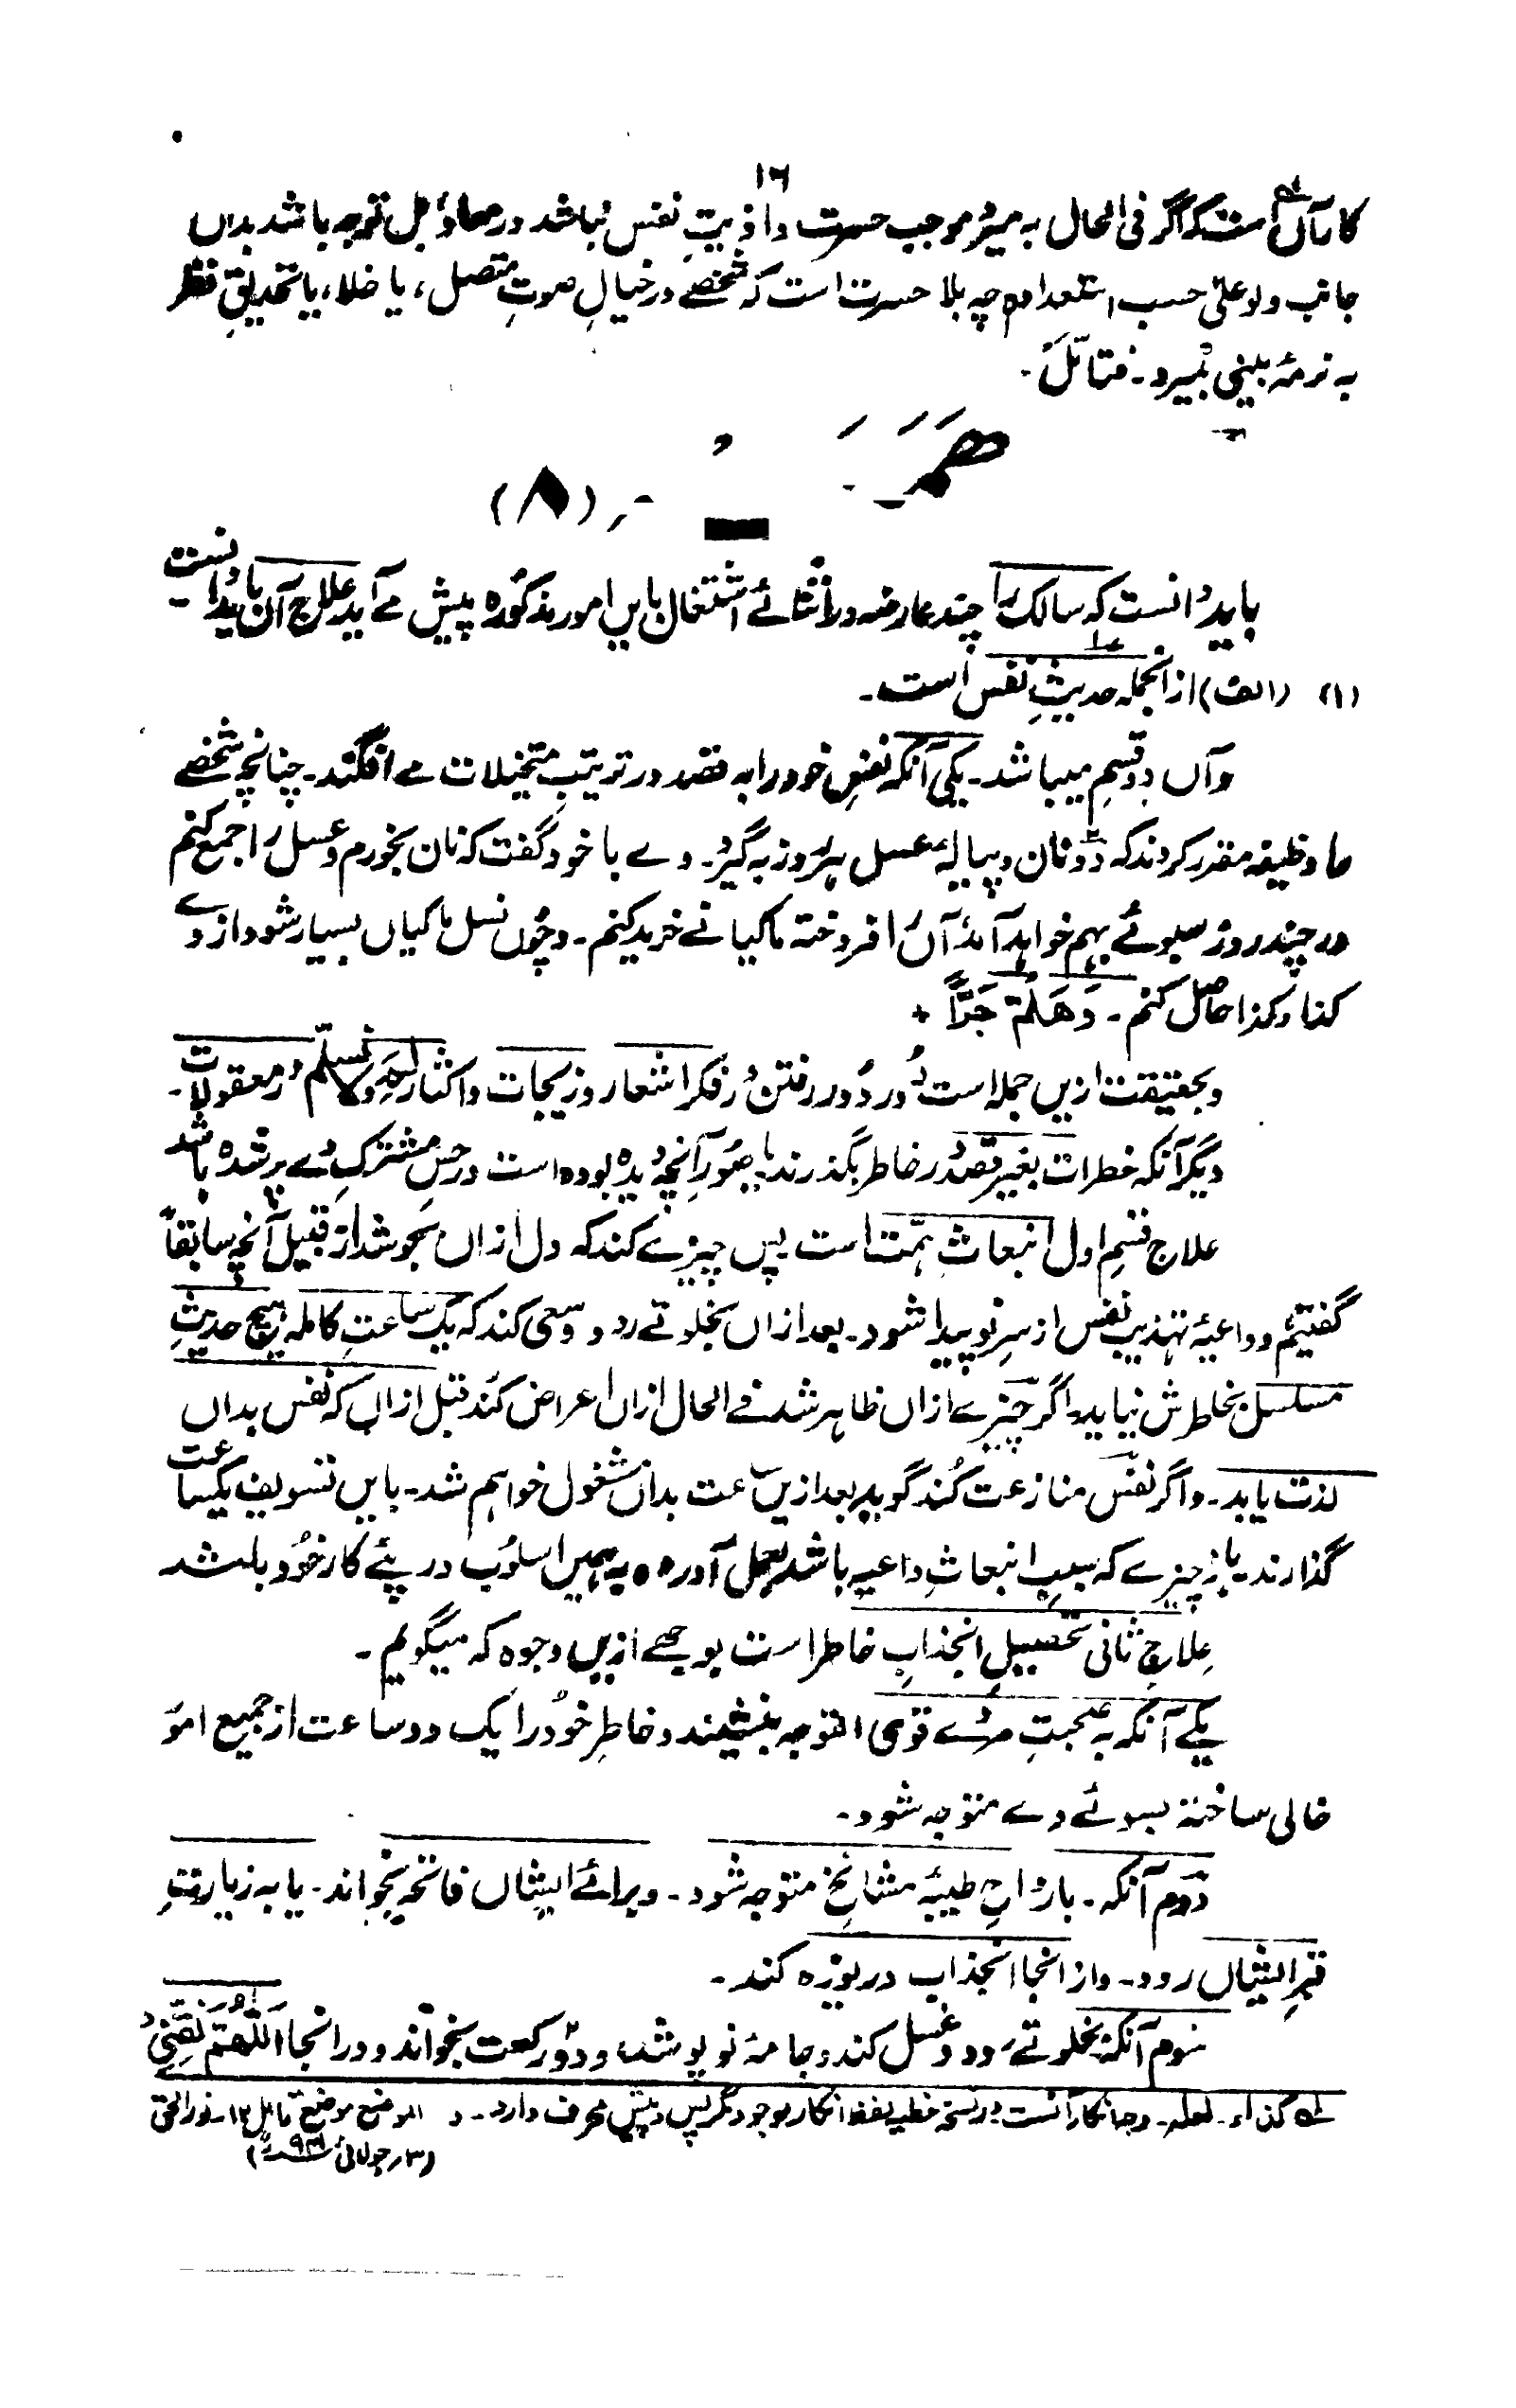 ۱۶
کار آں است کہ اگر فی الحال بہ میرد موجب حسرت و اذیتِ نفس نباشد در معاد، بل توجہ باشد بداں
جانب ولو علیٰ حسب استعدادہ چہ بلا حسرت است کہ شخصے در خیالِ صوتِ متصل، یا خلا، یا تحدیقِ نظر
بہ نرمۂ بینی بمیرد۔ فتأمّل۔
(۸)
باید دانست کہ سالک را چند عارضہ در اثنائے اشتغال بایں امور مذکورہ پیش مے آید علاج آں باید دانست۔
(۱) (الف) ازانجملہ حدیثِ نفس است۔
وآں دو قسم میباشد۔ یکی آنکہ نفسِ خود را بہ قصد در ترتیبِ متخیلات مے افگند۔ چنانچہ شخصے
را وظیفہ مقرر کردند کہ دو نان و پیالۂ عسل ہر روز بہ گیرد۔ وے با خود گفت کہ نان بخورم و عسل را جمع کنم
در چند روز سبوئے بہم خواہد آمد آں را فروختہ ماکیانے خرید کنم۔ و چوں نسل ماکیاں بسیار شود از وے
کذا و کذا حاصل کنم۔ وَهَلُمَّ جَرًّا +
و بحقیقت ازیں جملہ است دور دور رفتن در فکر اشعار و زیجات و اکثار لِمَ و لا نسلّم در معقولات۔
دیگر آنکہ خطرات بغیر قصد در خاطر بگذرند یا صورِ آنچہ دیدہ بودہ است در حسِ مشترکِ وے پر شدہ باشد
علاج قسمِ اول انبعاثِ ہمّت است پس چیزے کند کہ دل ازاں بجوشد از قبیل آنچہ سابقاً
گفتیم و داعیۂ تہذیبِ نفس از سرِ نو پیدا شود۔ بعد ازاں بخلوتے رود و سعی کند کہ یک ساعتِ کاملہ ہیچ حدیثِ
مسلسل بخاطرش نیاید و اگر چیزے ازاں ظاہر شد فے الحال ازاں اعراض کند قبل ازاں کہ نفس بداں
لذت یابد۔ و اگر نفس منازعت کُند گوید بعد ازیں ساعت بداں مشغول خواہم شد۔ بایں تسویف یکساعت
گذارند باز چیزے کہ سببِ انبعاثِ داعیہ باشد بعمل آوردہ بہ ہمیں اسلوب در پئے کار خود باشد
علاجِ ثانی تحصیلِ انجذابِ خاطر است بوجہے ازیں وجوہ کہ میگویم۔
یکے آنکہ بہ صحبتِ مردے قوی التوجہ بنشیند و خاطرِ خود را یک دو ساعت از جمیع امور
خالی ساختہ بسوئے وے متوجہ شود۔
دوم آنکہ۔ بارواحِ طیبۂ مشائخ متوجہ شود۔ و برائے ایشاں فاتحہ بخواند۔ یا بہ زیارتِ
قبرِ ایشاں رود۔ و از انجا انجذاب دریوزہ کند۔
سوم آنکہ بخلوتے رود و غسل کند و جامۂ نو پوشد و دو رکعت بخواند و در انجا اَللّٰهُمَّ نَقِّنِیْ
لہ کذا۔ لعلہ۔ و جان کار آنست در نسخہ خطیہ لفظ انکار موجود مگر پس و پیش محرف دارد۔ و الموضع موضع تامل ۱۲۔ نور الحق